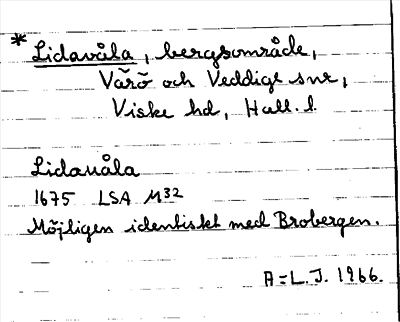 * Lidavåla, bergsområde,
Värö och Veddige snr,
Viske hd, Hall. l.
Lidauåla
1675 LSA M32
Möjligen identiskt med Brobergen.
A=L.J. 1966.